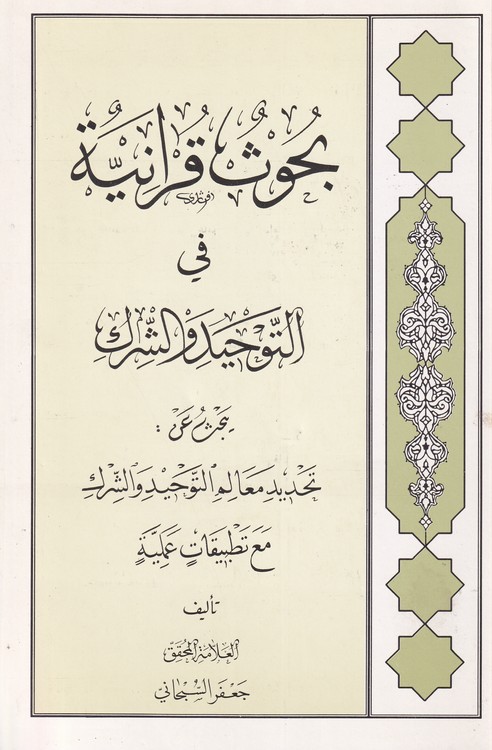 بُحُوثٌ قُرآنِيَّة
في
التَّوْحِيدِ وَالشِّرك
يبحث عَن :
تَحْدِيدِ مَعَالِمِ التَّوحِيدِ وَالشِّركِ
مَعَ تَطبِيقَاتٍ عَمَلِيَّةٍ
تأليف
العَلّامَة المُحَقِّق
جَعفَر السُّبحَاني